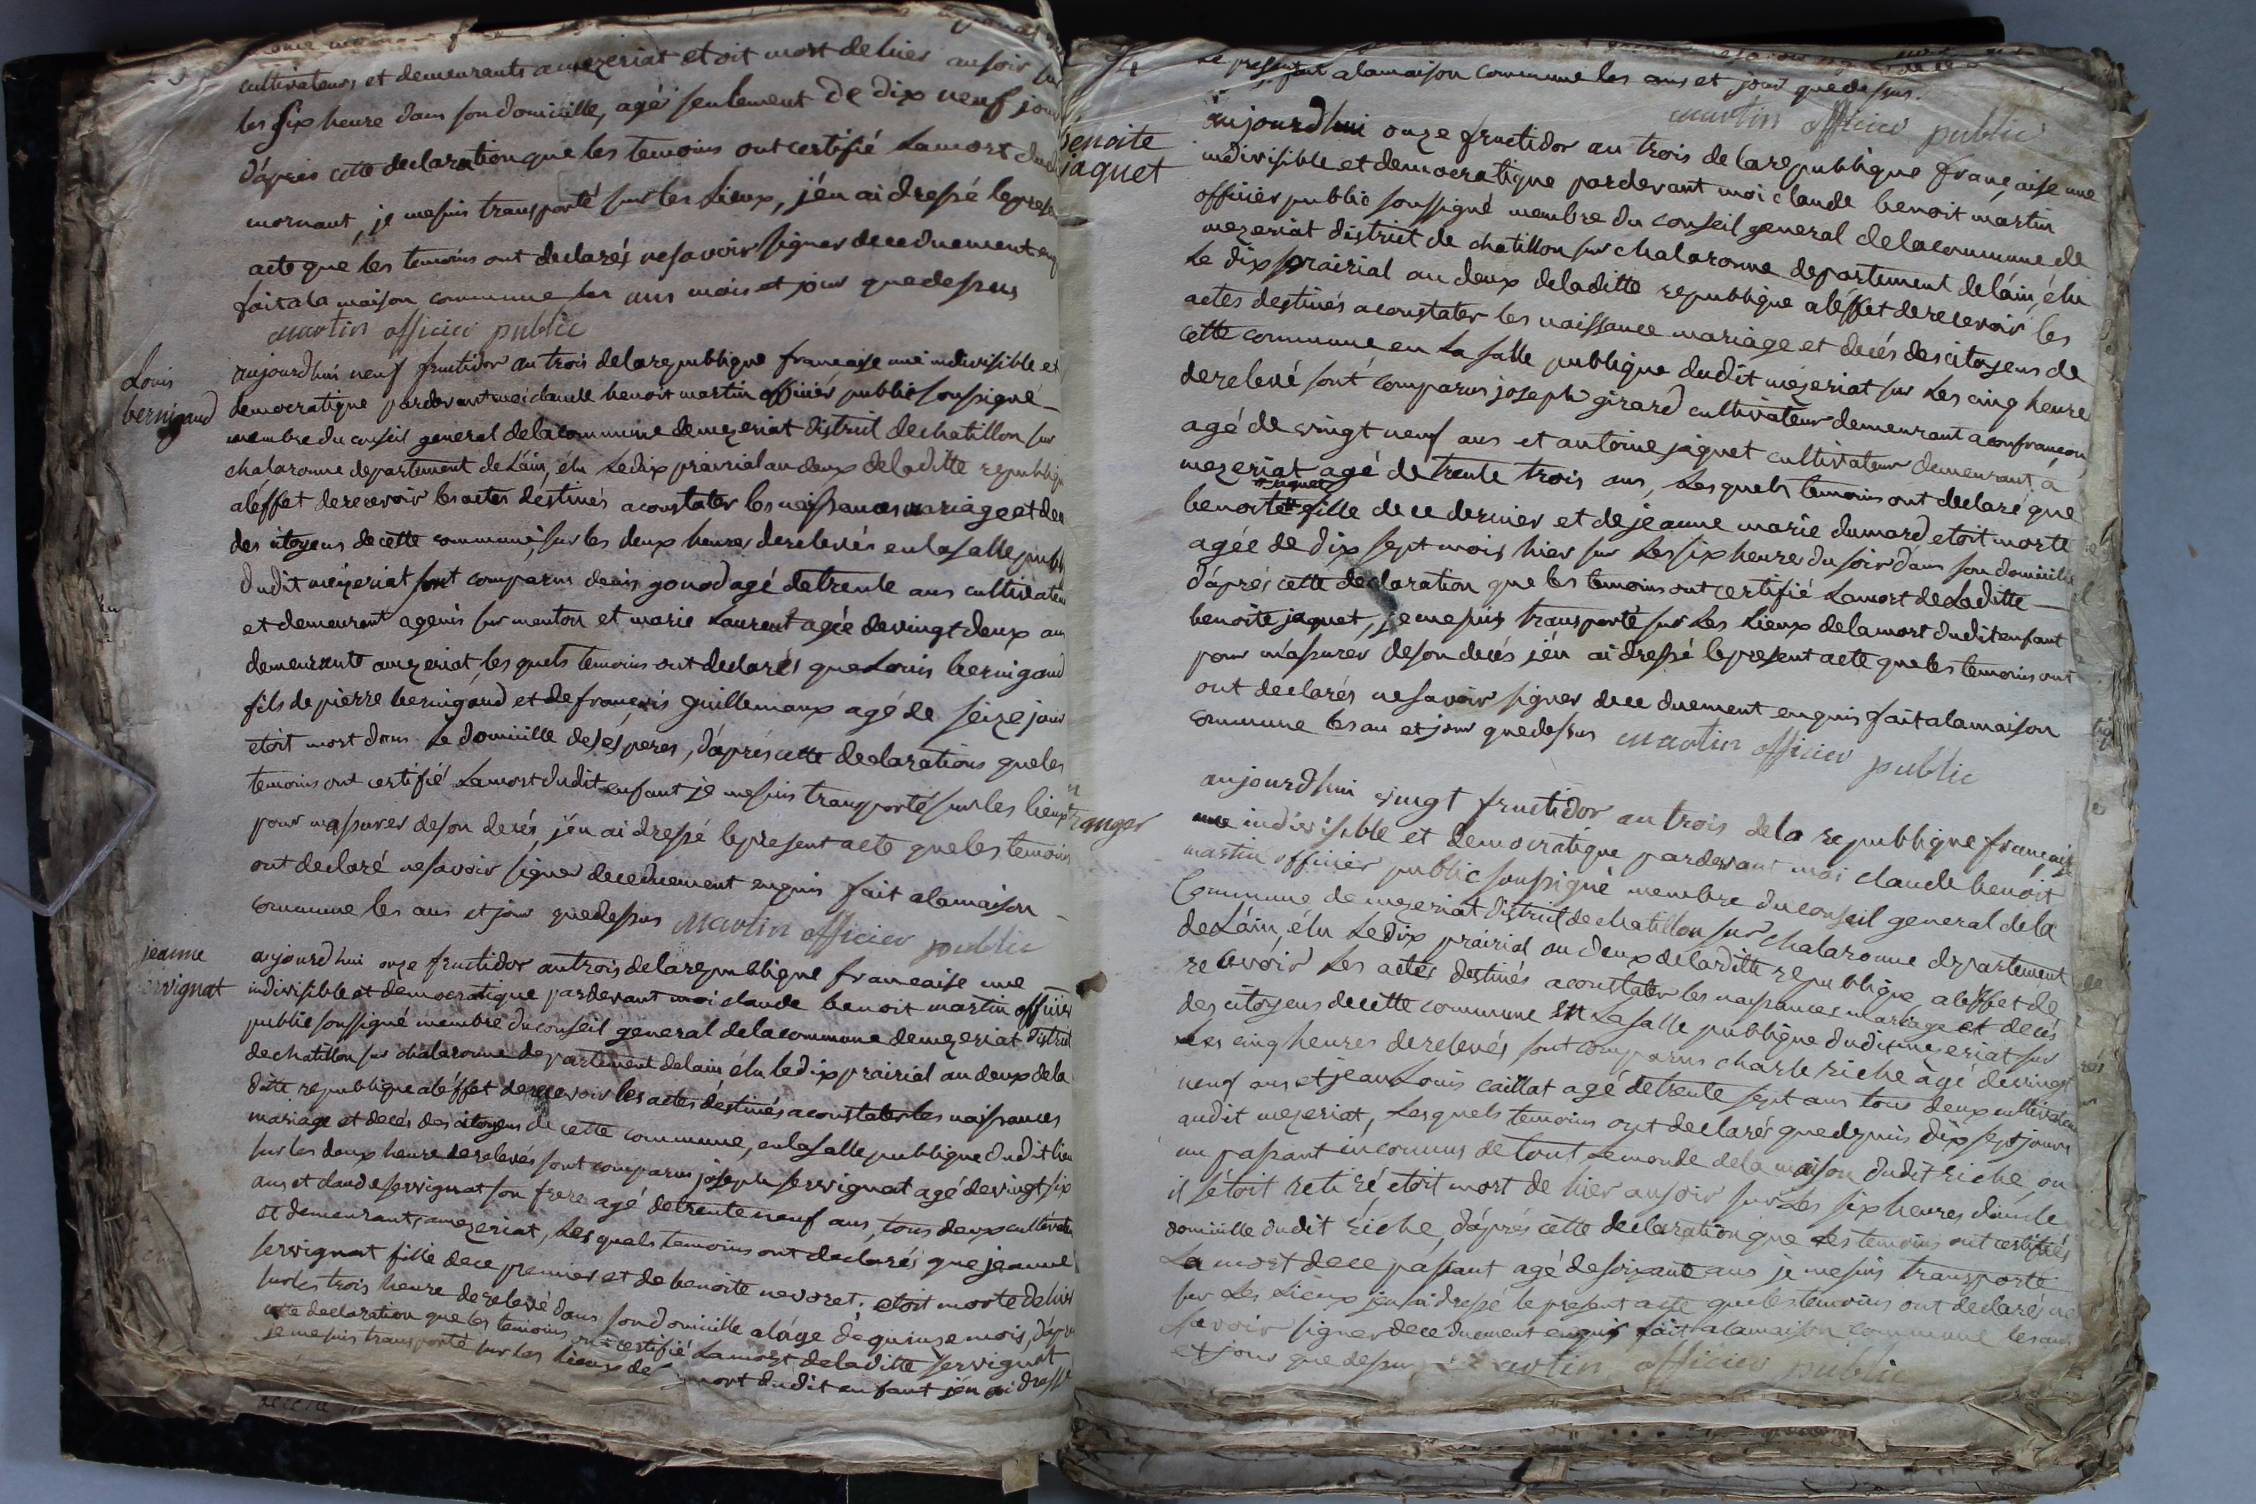 cultivateurs et demeurants a mezeriat etoit mort de hier au soir sur
les six heure dans son domicille, agé seulement de dix neuf jour
d'aprés cette declaration que les temoins ont certifié la mort dud
mornant, je me suis transporté sur les Lieux, j'en ai dressé le prese
acte que les temoins ont declarés ne savoir signer de ce duement enq
fait a la maison commune les ans mois et jour que dessus
martin officier public
Louis
bernigaud
aujourd'hui neuf fructidor an trois de la republique francaise une indivisible et
democratique pardevant moi claude benoit martin officier public soussigné
membre du conseil general de la commune de mezeriat district de chatillon sur
chalaronne departement de L'ain, élu Le dix prairial an deux de laditte republiq
a l'éffet de recevoir les actes déstinés a constater les naissances mariage et dec
des citoyens de cette commune, sur les deux heures de relevés en la salle publi
dudit mézeriat sont comparus denis gonod agé de trente ans cultivateu
et demeurant a genis sur menton et marie Laurent agée de vingt deux an
demeurante a mezeriat, les quels temoins ont declarés que Louis bernigaud
fils de pierre bernigaud et de françois guillemaux agé de seize jour
etoit mort dans Le domicille de ses peres, d'aprés cette declarations que les
temoins ont certifié La mort dudit enfant je me suis transporté sur les lieux
pour m'assurer de son decés, j'en ai dressé le present acte que les temoins
ont declaré ne savoir signer de ce duement enquis fait a la maison
commune les ans et jour que dessus Martin officier public
jeanne
servignat
aujourd'hui onze fructidor an trois de la republique francaise une
indivisible et democratique pardevant moi claude benoit martin officier
public soussigné membre du conseil general de la commune de mezeriat district
de chatillon sur chalaronne departement de lain élu le dix prairial an deux de la
ditte republique a l'éffet de recevoir les actes déstinés a constater les naissances
mariage et decés des citoyens de cette commune, en la salle publique dudit lieu
sur les deux heure de relevés sont comparus joseph servignat agé de vingt six
ans et claude servignat son frere agé de trente neuf ans, tous deux cultivate
et demeurant a mezeriat, Les quels temoins ont declarés que jeanne
servignat fille de ce premier et de benoite nevoret, etoit morte de hier
sur les trois heure de relevé dans son domicille a l'áge de quinze mois, d'apr
cette declaration que les temoins ont certifié La mort de laditte servignat
je me suis transporté sur les Lieux de mort dudit enfant j'en ai dressé
Le present a la maison commune les ans et jour que dessus.
martin officier public
benoite
jaquet
aujourd'hui onze fructidor an trois de la republique française une
indivisible et democratique pardevant moi claude benoit martin
officier public soussigné membre du conseil general de la commune de
mezeriat district de chatillon sur chalaronne departement de l'áin, élu
Le dix prairial an deux de laditte republique a l'éffet de recevoir les
actes destinés a constater les naissance mariage et decés des citoyens de
cette commune en La salle publique dudit mézeriat sur Les cinq heure
de relevé sont comparus joseph girard cultivateur demeurant a confrançon
agé de vingt neuf ans et antoine jaquet cultivateur demeurant a
mezeriat agé de trente trois ans, Les quels temoins ont declaré que
jaquet
benoite fille de ce dernier et de jeanne marie dumard etoit morte
agée de dix sept mois hier sur Les six heures du soir dans son domicille
d'áprés cette declaration que les temoins ont certifié La mort de Laditte
benoite jaquet, je me suis transporté sur Les Lieux de la mort dudit enfant
pour m'assurer de son decés j'en ai dressé le present acte que les temoins ont
ont declarés ne savoir signer de ce duement enquis fait a la maison
commune les an et jour que dessus Martin officier public
tranger
aujourd'hui vingt fructidor an trois de la republique française
une indivisible et democratique pardevant moi claude benoit
martin officier public soussigné membre du conseil general de la
Commune de mezeriat district de chatillon sur chalaronne departement
de L'áin, élu Le dix prairial an deux de laditte republique a l'éffet de
recevoir Les actes destinés a constater les naissances mariage et decés
des citoyens de cette commune en La salle publique dudit mezeriat sur
Les cinq heures de relevés sont comparus charle riche àgé de vingt
neuf ans et jean Louis caillat agé de trente sept ans tous deux cultivateur
audit mezeriat, Les quels temoins ont declarés que depuis dix sept jours
un passant inconnus de tout Le monde de la maison dudit riche, ou
il s'étoit retiré etoit mort de hier au soir sur Les six heures dans le
domicille dudit riche, d'áprés cette declaration que Les temoins ont certifiés
La mort de ce passant agé de soixante ans je me suis transporté
sur Les Lieux j'en ai dressé le present acte que les temoins ont declarés ne
savoir signer de ce duement enquis fait a la maison commune les ans
et jour que dessus martin officier public